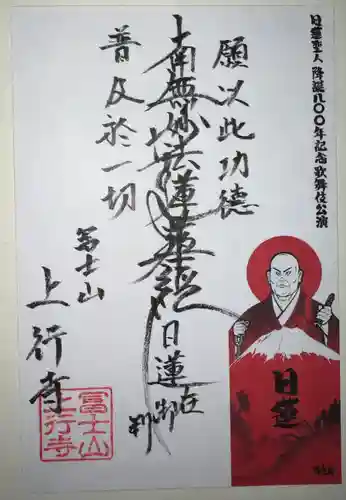 日蓮聖人 降誕八〇〇年記念歌舞伎公演
願以此功徳
南無妙法蓮華経
日蓮
在御判
普及於一切
冨士山
上行寺
冨士山
上行寺
日蓮